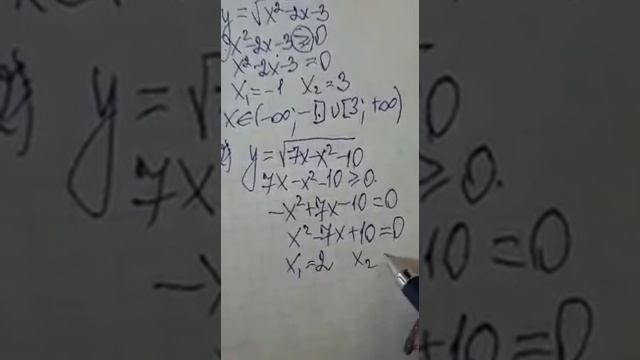 y = √x²-2x-3
x²-2x-3 ≥ 0
x²-2x-3 = 0
x₁ = -1 x₂ = 3
x∈(-∞; -1] ∪ [3; +∞)
2) y = √7x-x²-10
7x-x²-10 ≥ 0.
-x²+7x-10 = 0
x²-7x+10 = 0
x₁ = 2 x₂